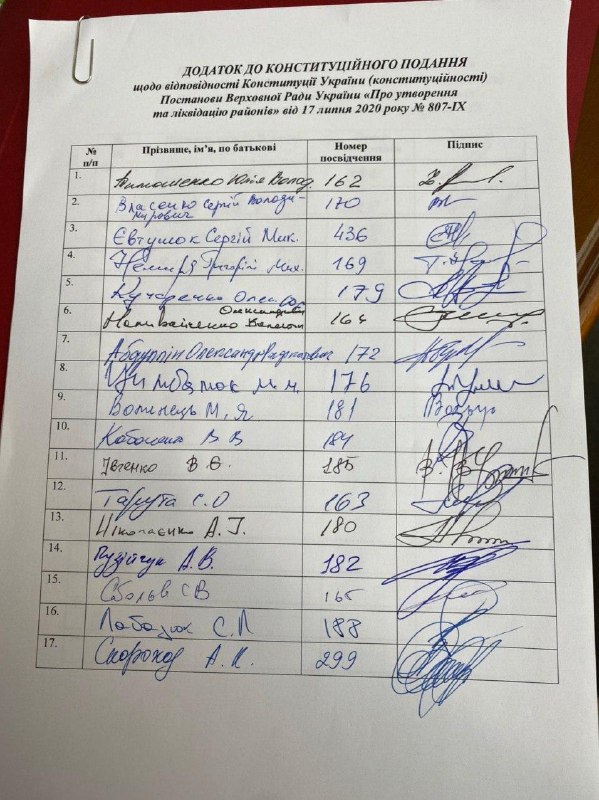 ДОДАТОК ДО КОНСТИТУЦІЙНОГО ПОДАННЯ
щодо відповідності Конституції України (конституційності)
Постанови Верховної Ради України «Про утворення
та ліквідацію районів» від 17 липня 2020 року № 807-IX
№ п/п Прізвище, ім'я, по батькові Номер посвідчення Підпис
1. Тимошенко Юлія Волод. 162
2. Власенко Сергій Володи-мирович 170
3. Євтушок Сергій Мик. 436
4. Немиря Григорій Мих. 169
5. Кучеренко Олексій 179
6. Наливайченко Валентин Олександрович 164
7. Абдуллін Олександр 172
8. Цимбалюк М.М. 176
9. Волинець М.Я 181
10. В В 184
11. Івченко В.Є. 185
12. Тарута С.О 163
13. Ніколаєнко А.І. 180
14. Пузійчук А.В. 182
15. Соболєв С В 165
16. Лабазюк С.П 188
17. Скороход А.К. 299